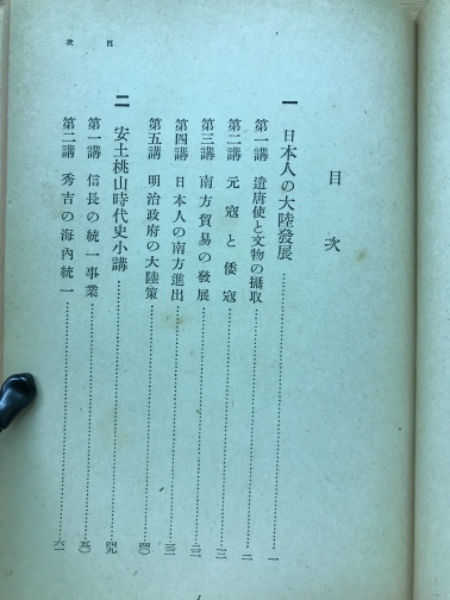 目次
目次
一 日本人の大陸發展……一
第一講 遣唐使と文物の攝取……二
第二講 元寇と倭寇……一二
第三講 南方貿易の發展……二二
第四講 日本人の南方進出……三二
第五講 明治政府の大陸策……四〇
二 安土桃山時代史小講……四九
第一講 信長の統一事業……五〇
第二講 秀吉の海內統一……六一